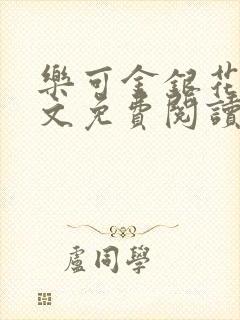 樂可金銀花
文免費閱讀
盧同學